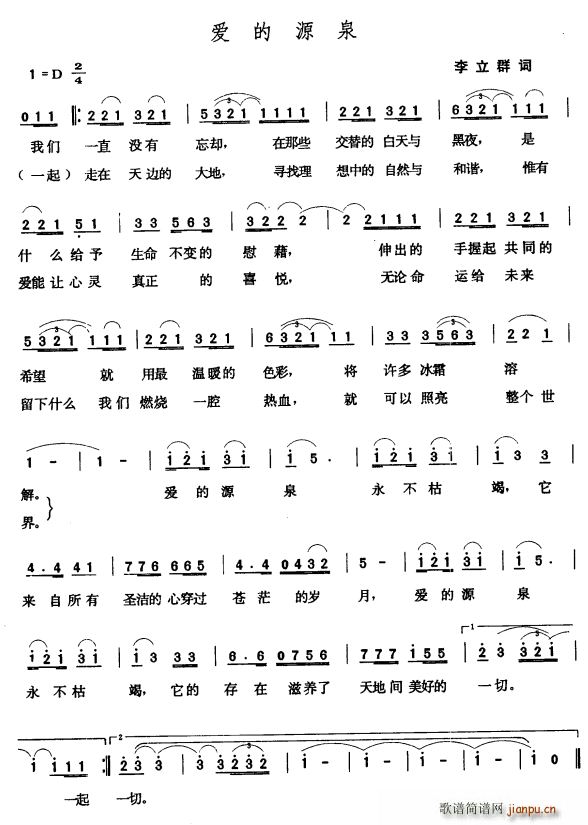 爱的源泉
1=D 2/4
李立群 词
0 1 1 2 2 1 3 2 1 5 3 2 1 1 1 1 1 2 2 1 2 2 1 6 3 2 1 1 1 1
我们 一直 没有 忘却， 在那些 交替的 白天与 黑夜， 是
（一起）走在 天边的 大地， 寻找理 想中的 自然与 和谐， 惟有
2 2 1 5 1 3 3 5 6 3 3 2 2 2 2 2 1 1 1 2 2 1 3 2 1
什么给予 生命 不变的 慰藉， 伸出的 手握起 共同的
爱能让心灵 真正 的 喜悦， 无论命 运给 未来
5 3 2 1 1 1 1 2 2 1 3 3 2 1 6 3 2 1 1 1 3 3 3 5 6 3 2 2 1
希望 就 用最 温暖的 色彩， 将 许多 冰霜 溶
留下什么 我们 燃烧 一腔 热血， 就 可以 照亮 整个世
1 - 1 - 1 2 1 3 1 1 5. 1 2 1 3 1 1 3 3
解。 爱的源 泉 永不枯 竭， 它
界。
4. 4 4 1 7 7 6 6 6 5 2. 2 0 4 3 2 5 - 1 2 1 3 1 1 5.
来自所有 圣洁的 心穿过 苍茫的岁 月， 爱的源 泉
1 2 1 3 1 1 3 3 3 6. 6 0 7 5 6 7 7 7 1 5 5 2 3 3 2 1
永不枯 竭， 它的 存在 滋养了 天地间 美好的 一切。
1 1 1 1 2 3 3 2 1 1 - 1 - 1 - 1 0
一起 一切。
歌谱简谱网 jianpu.cn